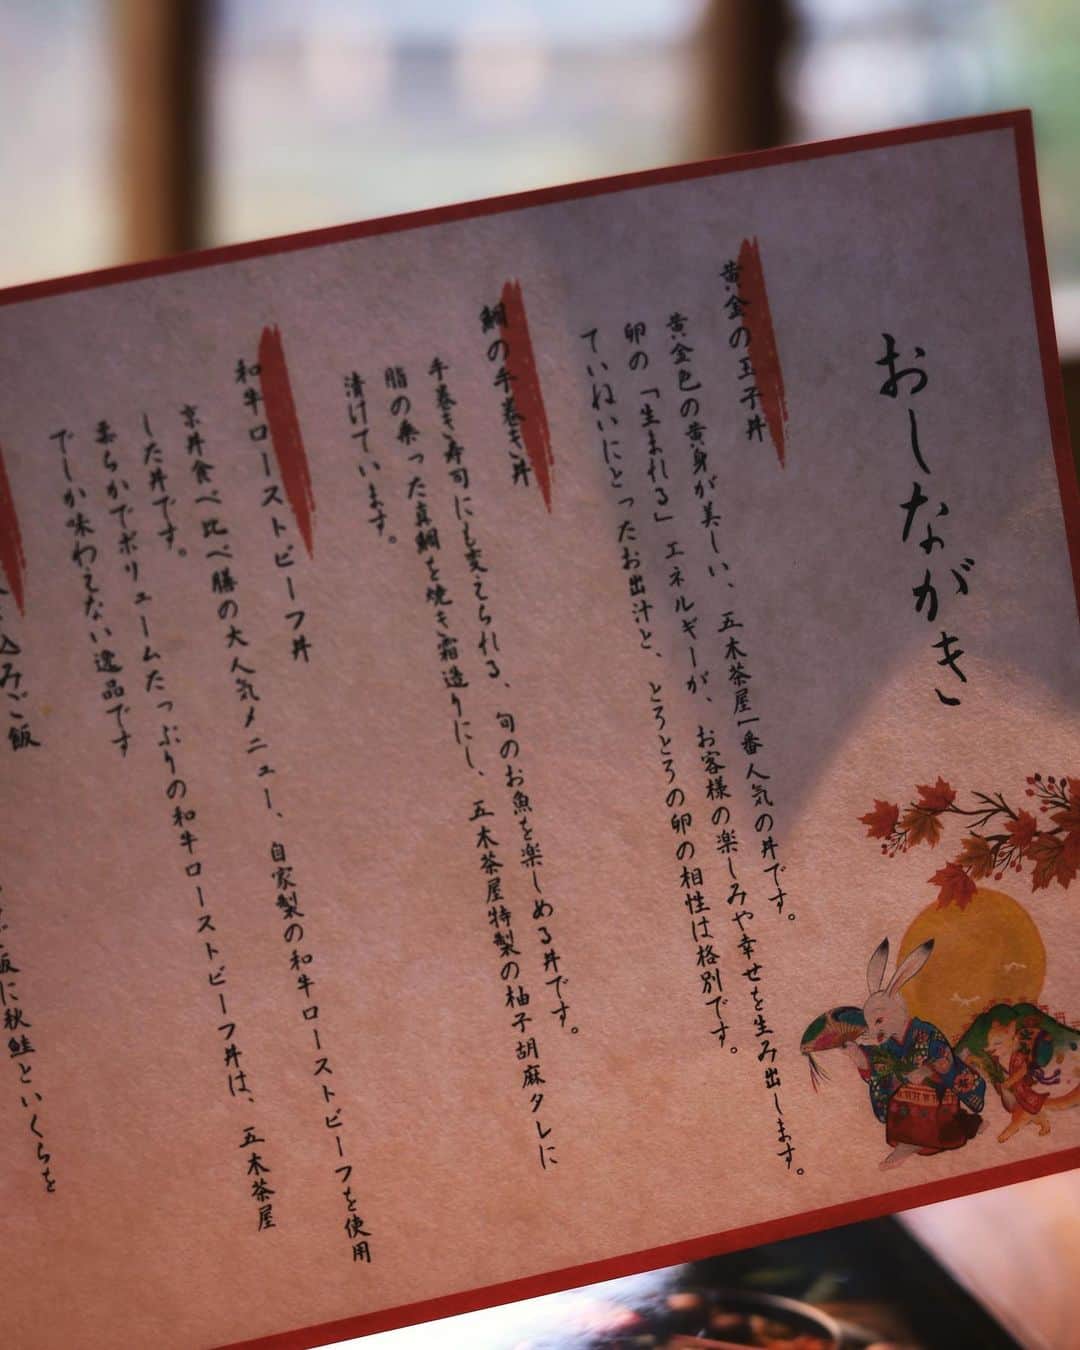 おしながき
黄金の玉子丼
黄金色の黄身が美しい、五木茶屋一番人気の丼です。
卵の「生まれる」エネルギーが、お客様の楽しみや幸せを生み出します。
ていねいにとったお出汁と、とろとろの卵の相性は格別です。
鯛の手巻き丼
手巻き寿司にも変えられる、旬のお魚を楽しめる丼です。
脂の乗った真鯛を焼き霜造りにし、五木茶屋特製の柚子胡麻タレに
漬けています。
和牛ローストビーフ丼
京丼食べ比べ膳の大人気メニュー、自家製の和牛ローストビーフを使用
した丼です。
柔らかでボリュームたっぷりの和牛ローストビーフ丼は、五木茶屋
でしか味わえない逸品です
込みご飯
ご飯に秋鮭といくらを